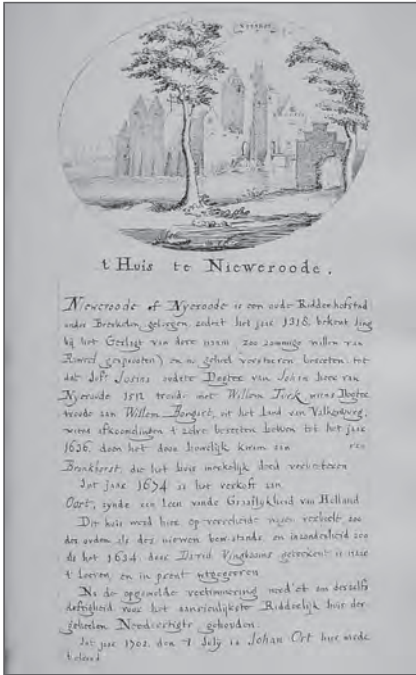 t Huis te Nieweroode.
Nieweroode of Nyeroode is een oude Ridderhofstad
onder Breukelen gelegen, zedert het jaar 1318. bekent
bij het Geslagt van deze naam zoo zommige willen van
en in geheel versturven bezeeten. tot
dat Joffr Josina oudste Dogter van Johan heer van
Nyeroode 1512 troude met Willem Turk wiens Dogter
troude aan Willem Bongart, uit het Land van Valkenburg,
wiens afkomelingen t zelve bezeeten hebben tot het jaar
1636. doen het door houwelijk kwam aan van
Bronkhorst, die het huis merkelijk deed
Int jaar 1674 is het verkoft aan
Oort, zynde een Leen vande Graaflykheid van Holland
Dit huis werd hier op verscheide wyzen verbeelt zoo
des ouden als des niewen bewstands, en inzonderheid zoo
als het 1634. door David Vingboons getekent is naar
t leeven, en in prent uytgegeven.
Na de opgemelde vertimmering werd et om derselfs
deftigheid voor het aanzienlijkste Ridderlijk huis der
geheelen Neederstigts gehouden.
Int jaar 1702. den 7 July is Johan Ort hier mede
beleend